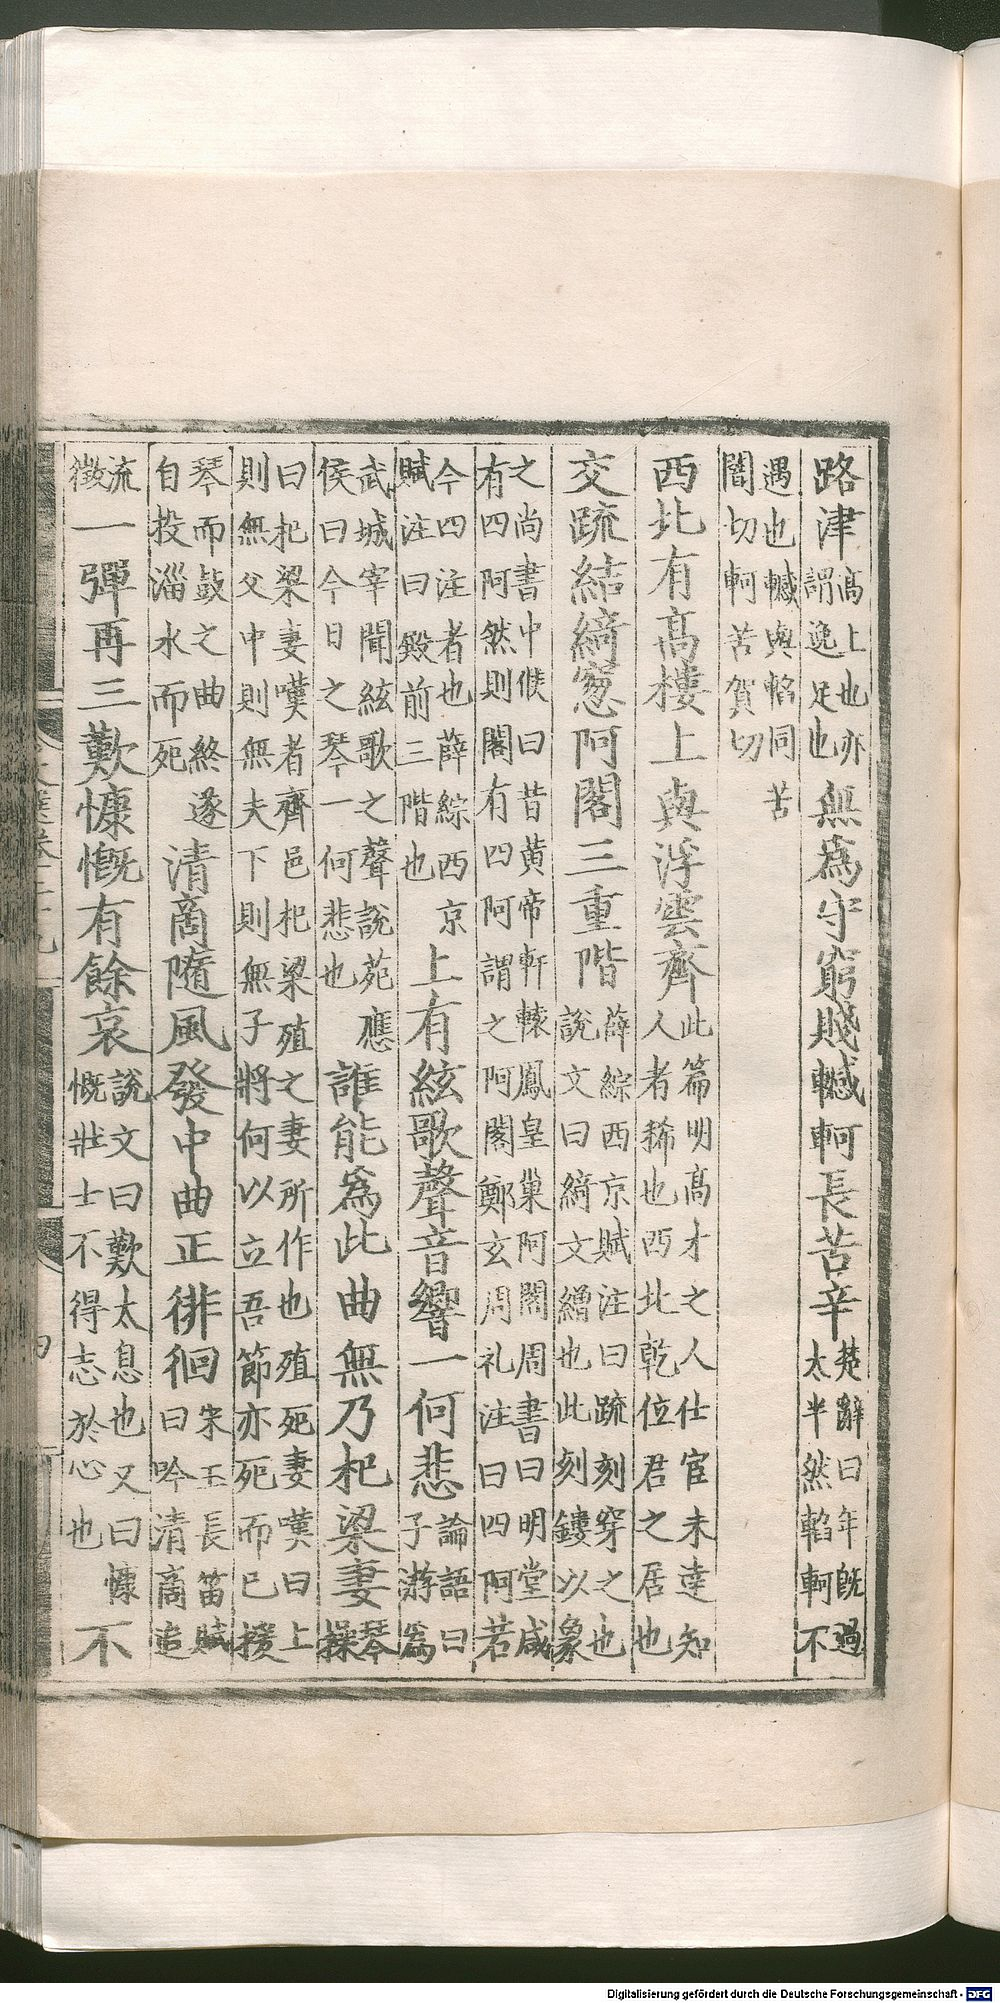 路津高上也亦謂逸足也無為守窮賤轗軻長苦辛楚辭曰年既過太半然轁軻不
遇也轗與轁同苦闇切軻苦賀切
西北有高樓上與浮雲齊此篇明高才之人仕宦未達知人者稀也西北乾位君之居也
交疏結綺窻阿閣三重階薛綜西京賦注曰疏刻穿之也說文曰綺文繒也此刻鏤以象
之尚書中候曰昔黃帝軒轅鳳皇巢阿閣周書曰明堂咸有四阿然則閣有四阿謂之阿閣鄭玄周礼注曰四阿若
今四注者也薛綜西京賦注曰殿前三階也上有絃歌聲音響一何悲論語曰子游為
武城宰聞絃歌之聲說苑應侯曰今日之琴一何悲也誰能為此曲無乃杞梁妻琴操
曰杞梁妻嘆者齊邑杞梁殖之妻所作也殖死妻嘆曰上則無父中則無夫下則無子將何以立吾節亦死而已援
琴而鼓之曲終遂自投淄水而死清商隨風發中曲正徘徊宋玉長笛賦曰吟清商追
流徵一彈再三歎慷慨有餘哀說文曰歎太息也又曰慷慨壯士不得志於心也不
Digitalisierung gefördert durch die Deutsche Forschungsgemeinschaft - DFG